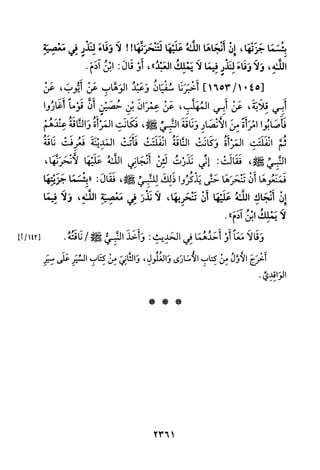 بِئْسَمَا جَزَتْهَا، إِنْ أَنْجَاهَا اللَّهُ عَلَيْهَا لَتَنْحَرَنَّهَا!! لَا وَفَاءَ لِنَذْرٍ فِي مَعْصِيَةِ
اللَّهِ، وَلَا وَفَاءَ لِنَذْرٍ فِيمَا لَا يَمْلِكُ الْعَبْدُ»، أَوْ قَالَ: ابْنُ آدَمَ.
[١٦٥٣/١٠٤٥] أَخْبَرَنَا سُفْيَانُ وَعَبْدُ الوَهَّابِ، عَنْ أَيُّوبَ، عَنْ
أَبِي قِلَابَةَ، عَنْ أَبِي المُهَلَّبِ، عَنْ عِمْرَانَ بْنِ حُصَيْنٍ أَنَّ قَوْماً أَغَارُوا
فَأَصَابُوا امْرَأَةً مِنَ الْأَنْصَارِ وَنَاقَةً لِلنَّبِيِّ ﷺ، فَكَانَتِ المَرْأَةُ وَالنَّاقَةُ عِنْدَهُمْ
ثُمَّ انْفَلَتَتِ المَرْأَةُ وَكَانَتِ النَّاقَةُ انْفَلَتَتْ، فَأَتَتِ المَدِينَةَ فَعُرِفَتْ نَاقَةُ
النَّبِيِّ ﷺ، فَقَالَتْ: إِنِّي نَذَرْتُ لَئِنْ أَنْجَانِيَ اللَّهُ عَلَيْهَا لَأَنْحَرَنَّهَا،
فَمَنَعُوهَا أَنْ تَنْحَرَهَا حَتَّى يَذْكُرُوا ذَلِكَ لِلنَّبِيِّ ﷺ، فَقَالَ: «بِئْسَمَا جَزَيْتِهَا
إِنْ أَنْجَاكِ اللَّهُ عَلَيْهَا أَنْ تَنْحَرِيهَا، لَا نَذْرَ فِي مَعْصِيَةِ اللَّهِ، وَلَا فِيمَا
لَا يَمْلِكُ ابْنُ آدَمَ».
وَقَالَا مَعاً أَوْ أَحَدُهُمَا فِي الحَدِيثِ: وَأَخَذَ النَّبِيُّ ﷺ / نَاقَتَهُ.
[١٤٢/أ]
أَخْرَجَ الأَوَّلَ مِنْ كِتابِ الأُسَارَى وَالغُلُولِ، وَالثَّانِيَ مِنْ كِتَابِ السِّيَرِ عَلَى سِيَرِ
الوَاقِدِيِّ.
* * *
٢٣٦١